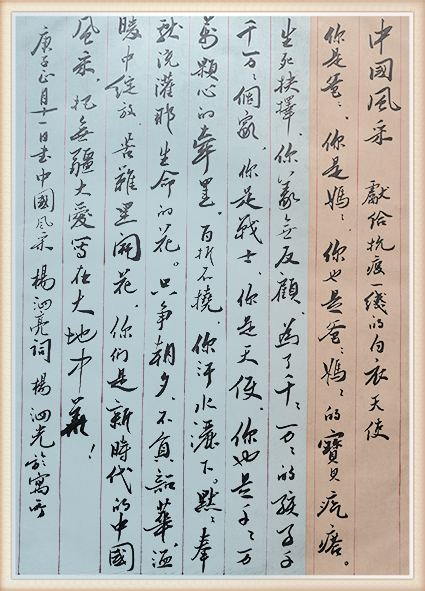 中國風采 獻給抗疫一綫的白衣天使
你是爸〻、你是媽〻、你也是爸〻媽〻的寶貝疙瘩。
生死抉擇、你義無反顧、為了千〻万〻的孩子千
千万〻個家、你是戰士、你是天使、你也是千〻万
萬顆心的牽罣。百折不撓、你汗水灑下。默〻奉
獻澆灌那生命的花。只爭朝夕、不負韶華、温
暖中綻放、苦難里開花、你們是新時代的中國
風采、把無疆大愛寫在大地中華！
庚子正月十一日書中國風采 楊泗亮詞 楊泗光於寓所